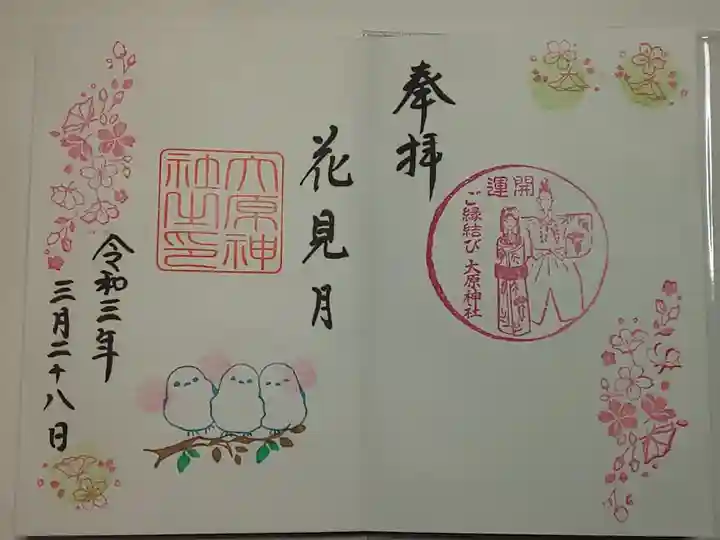 奉拝
開運
ご縁結び
大原神社
花見月
大原神
社之印
令和三年
三月二十八日